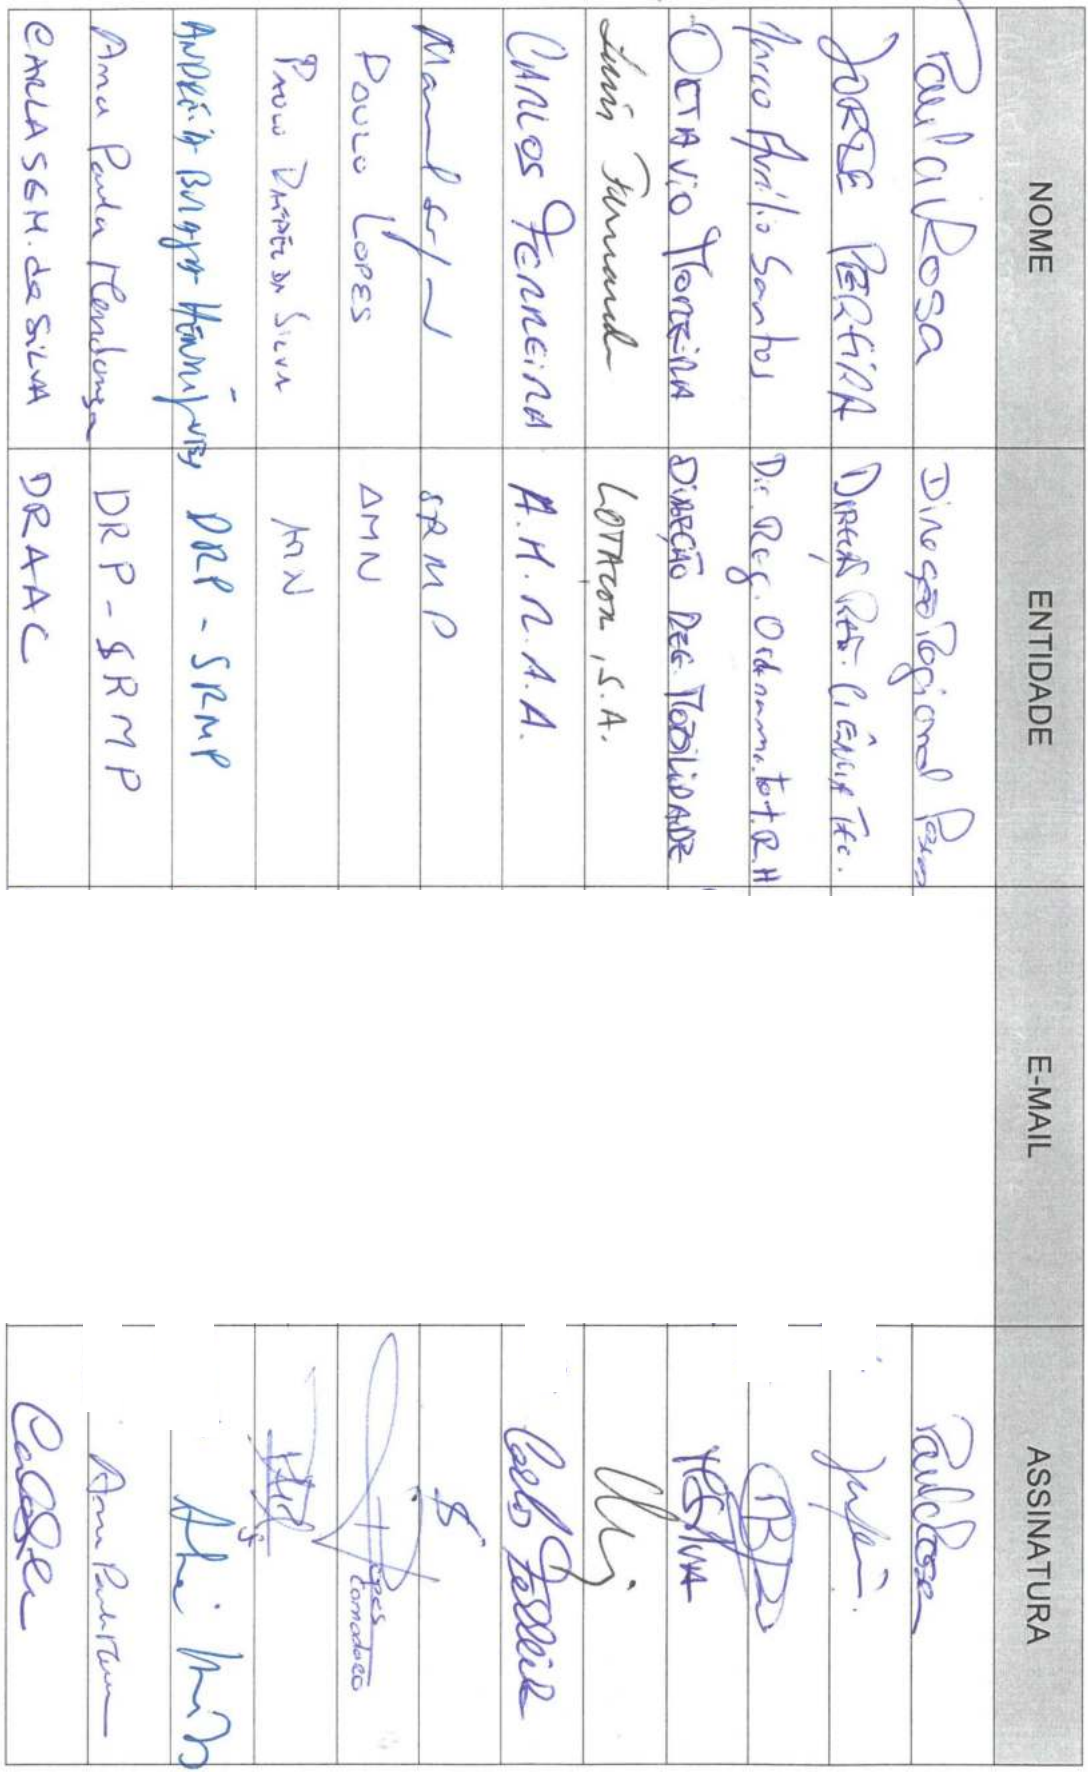 NOME ENTIDADE E-MAIL ASSINATURA
Paula Rosa Direção Regional Pescas Paula Rosa
JORGE PEREIRA DIREÇÃO REG. CIÊNCIA TEC.
Marco Aurílio Santos Dir. Reg. Ordenam. tot. R. H
OCTAVIO MOREIRA DIREÇÃO REG. MOBILIDADE
Luís Fernandes LOTAÇOR, S.A.
CARLOS FERREIRA A.H.R.A.A. Carlos Ferreira
Manuel SRMP
PAULO LOPES AMN Lopes Comodoro
PAULO RAFAEL DA SILVA AMN
ANDRÉIA BRAGA HENRIQUES DRP - SRMP
Ana Paula Mendonça DRP - SRMP
CARLA SGM. da SILVA DRAAC